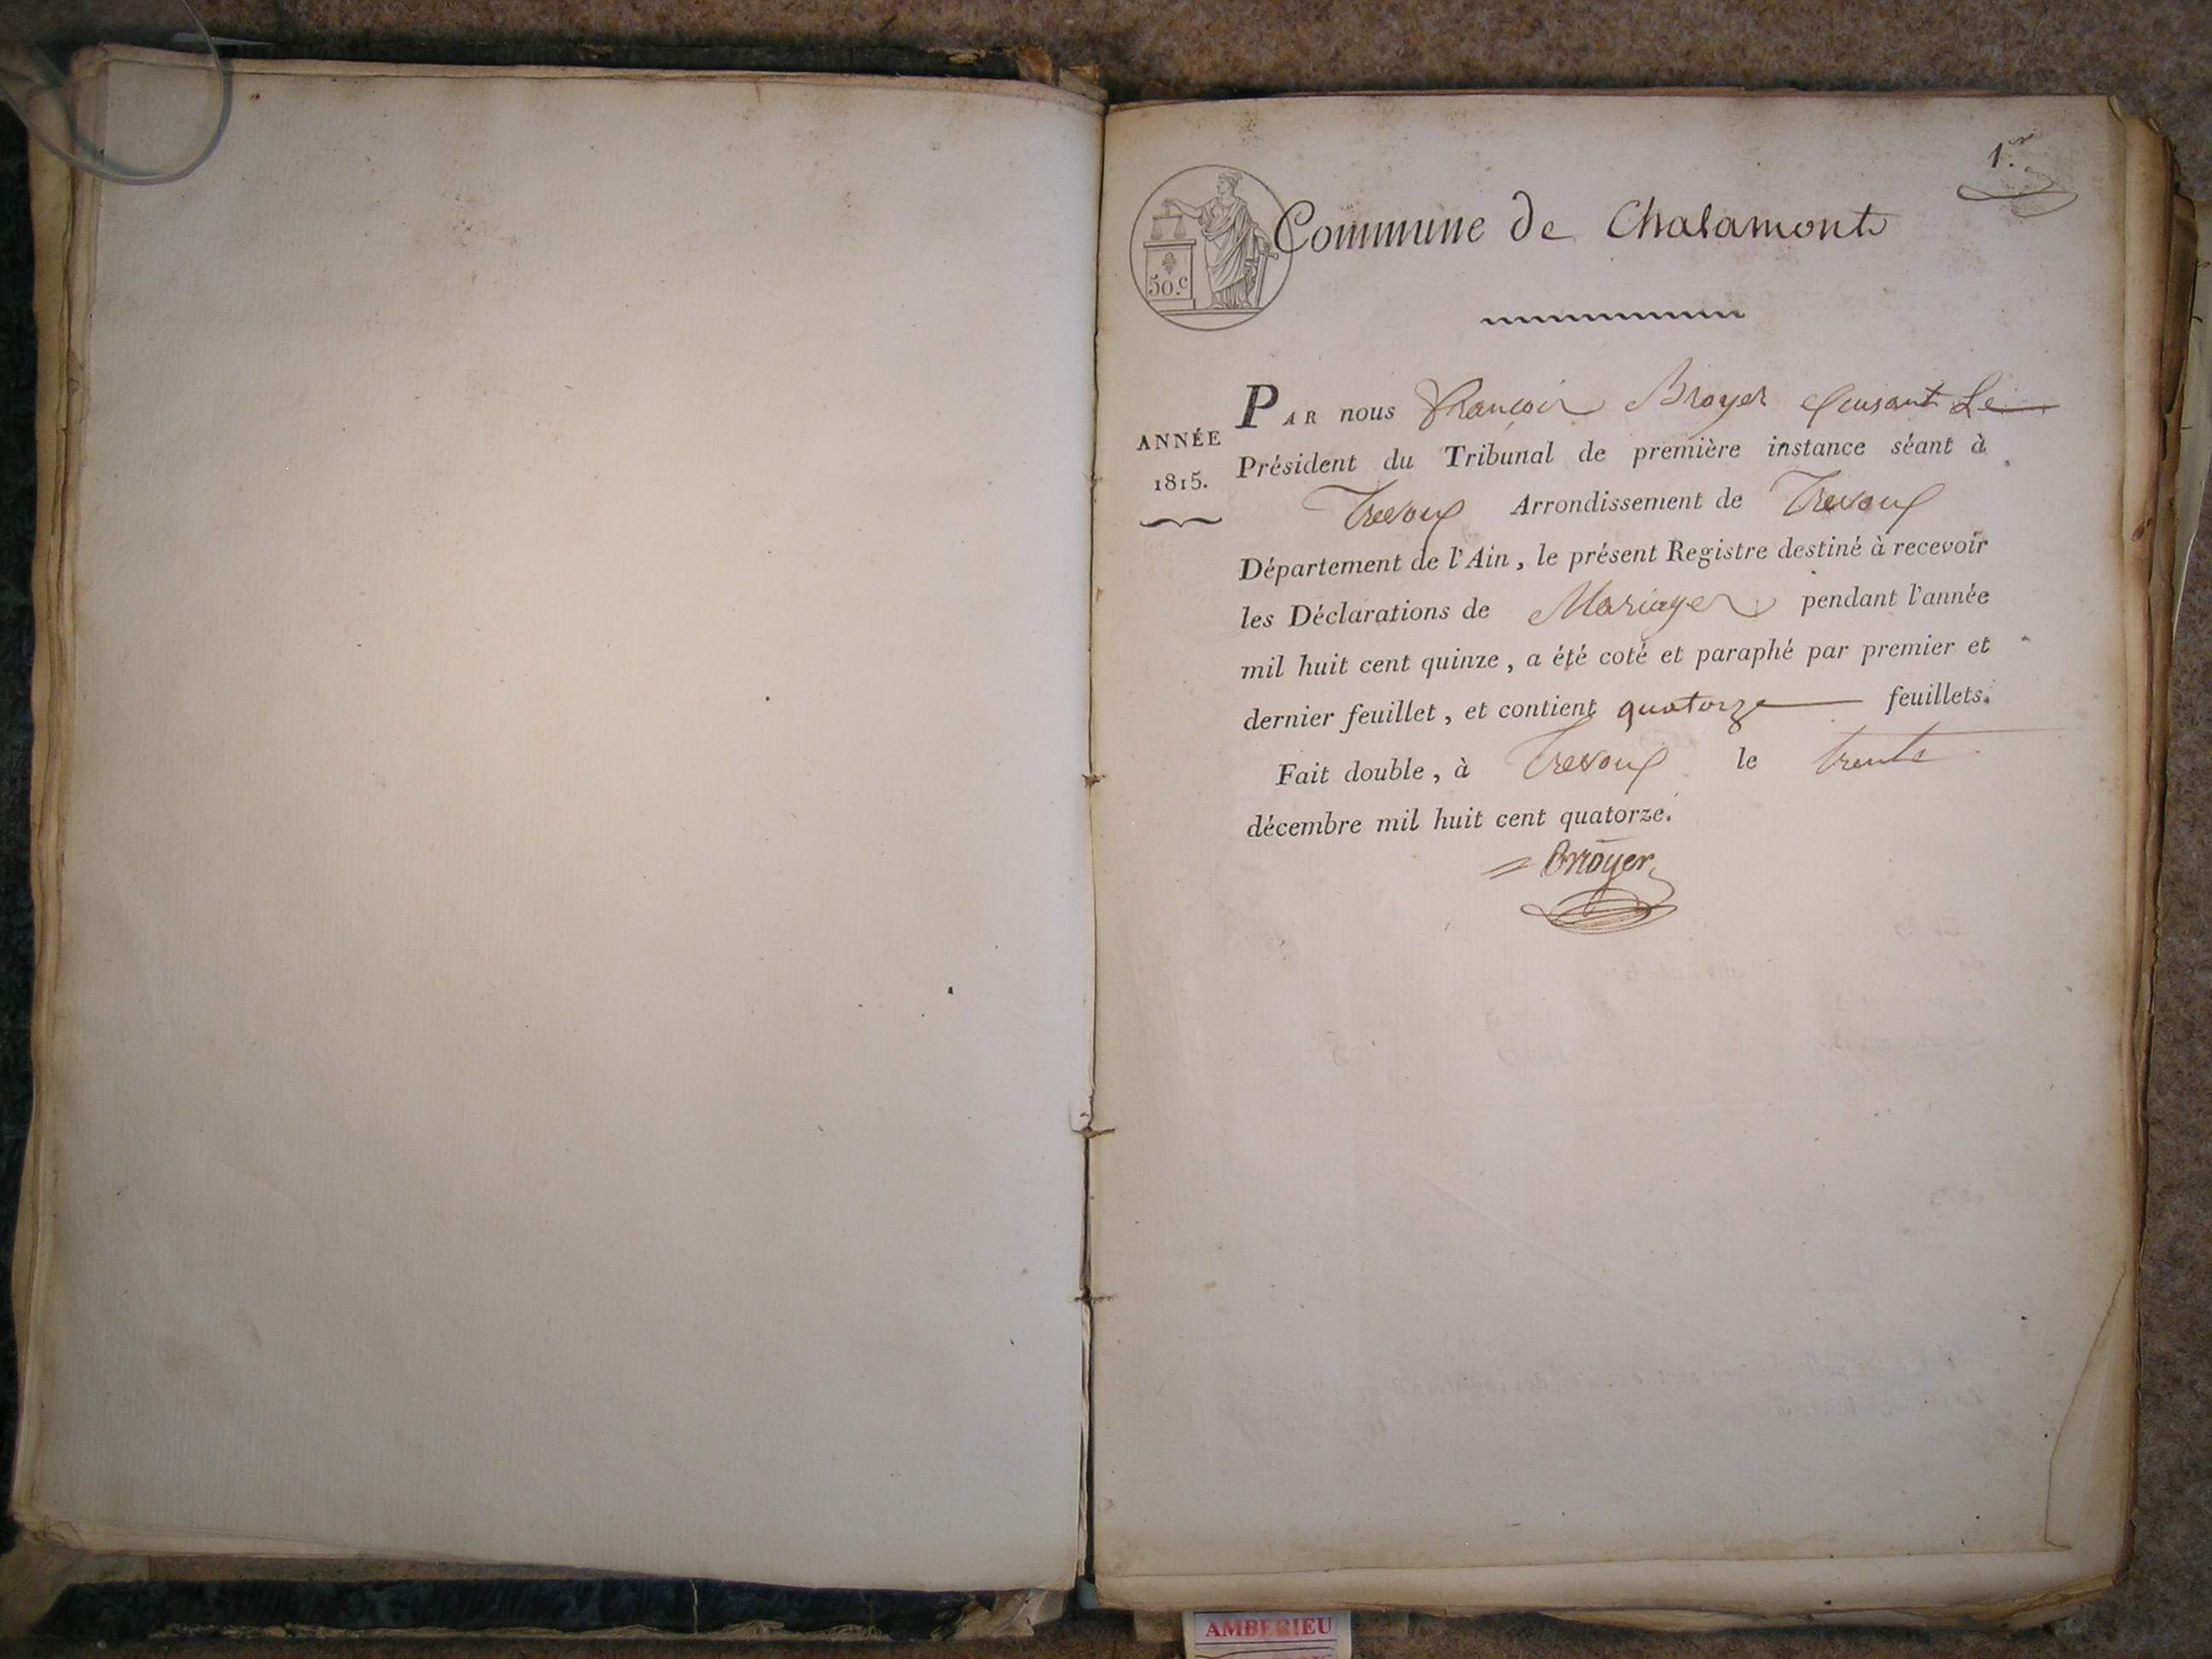 1.er
Commune de Chalamont
50.c
PAR nous François Broyer faisant Le
ANNÉE
1815.
Président du Tribunal de première instance séant à
Trevoux Arrondissement de Trevoux
Département de l'Ain, le présent Registre destiné à recevoir
les Déclarations de Mariages pendant l'année
mil huit cent quinze, a été coté et paraphé par premier et
dernier feuillet, et contient quatorze feuillets.
Fait double, à Trevoux le trente
décembre mil huit cent quatorze.
Broyer
AMBERIEU